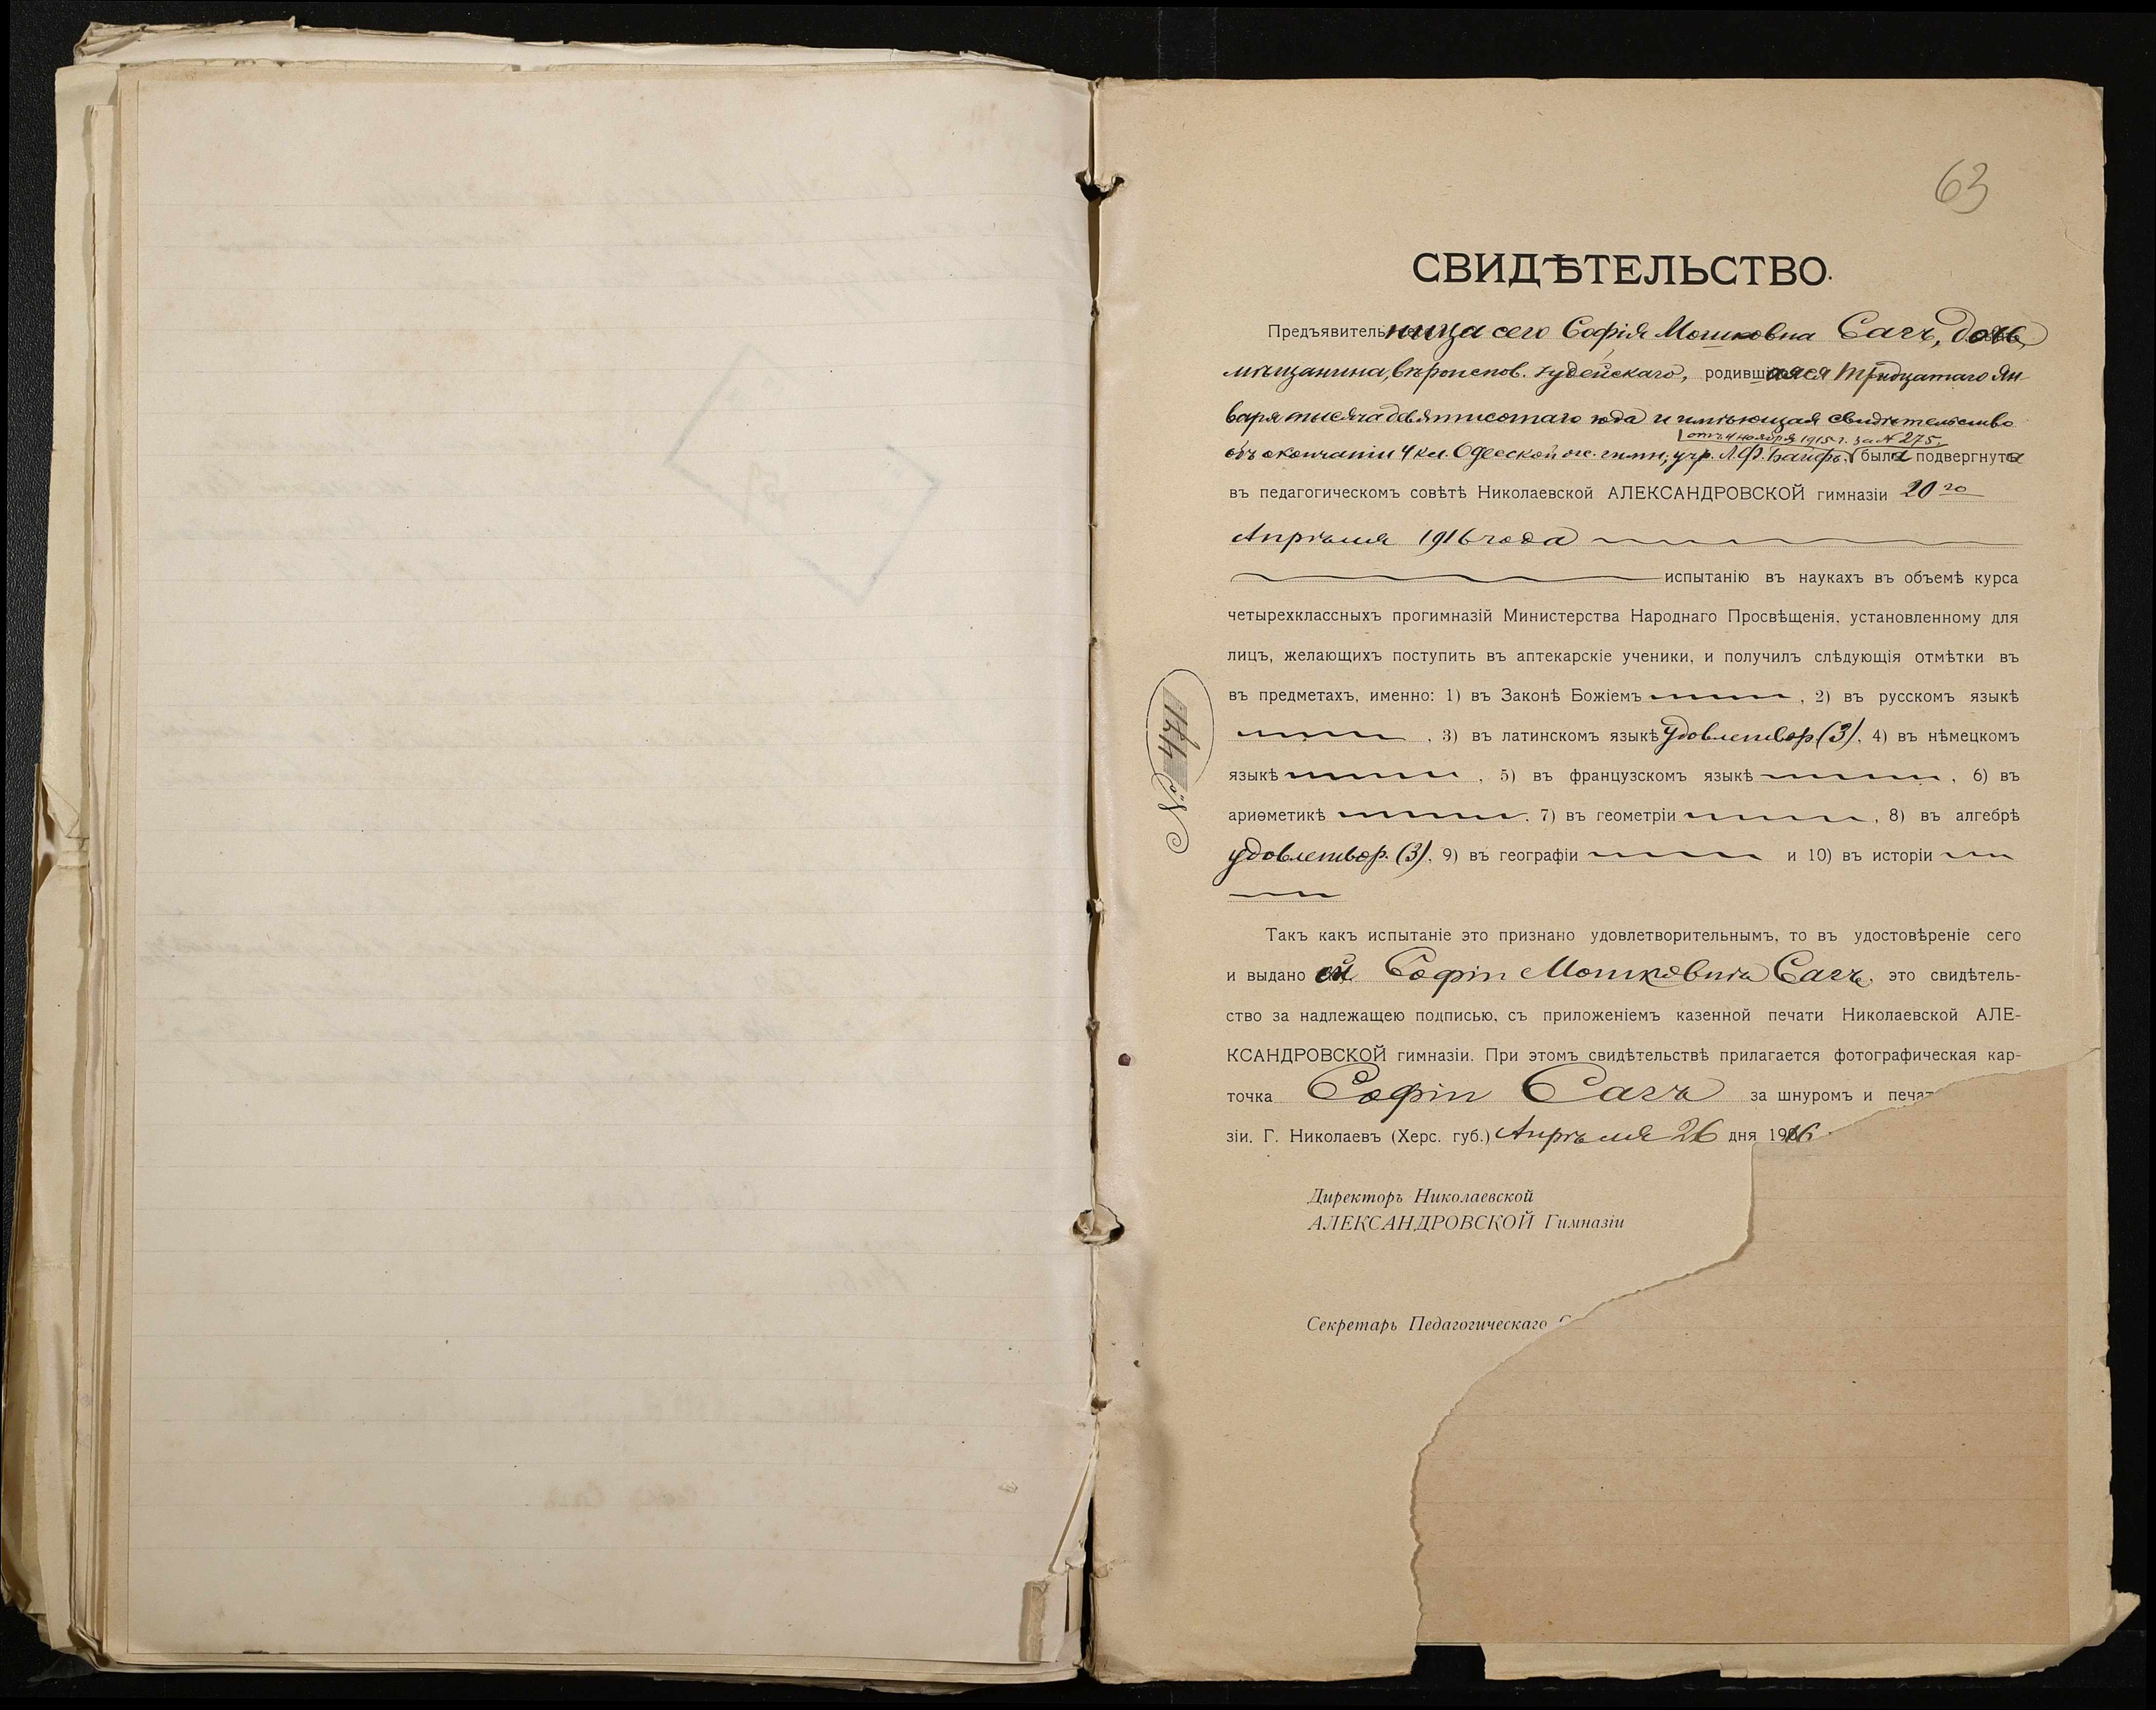 63
СВИДѢТЕЛЬСТВО.
Предъявительница сего Софія Мошковна Сагъ, дочь
мѣщанина, вѣроиспов. іудейскаго, родившаяся тридцатаго Ян-
варя тысяча девятисотаго года и имѣющая свидѣтельство
отъ 4 ноября 1915 г. за № 275,
объ окончаніи 4 кл. Одесской ж. гимн. учр. Л. Ф. была подвергнута
въ педагогическомъ совѣтѣ Николаевской АЛЕКСАНДРОВСКОЙ гимназіи 20го
Апрѣля 1916 года
испытанію въ наукахъ въ объемѣ курса
четырехклассныхъ прогимназій Министерства Народнаго Просвѣщенія, установленному для
лицъ, желающихъ поступить въ аптекарскіе ученики, и получилъ слѣдующія отмѣтки въ
въ предметахъ, именно: 1) въ Законѣ Божіемъ , 2) въ русскомъ языкѣ
, 3) въ латинскомъ языкѣ удовлетвор. (3), 4) въ нѣмецкомъ
языкѣ , 5) въ французскомъ языкѣ , 6) въ
ариѳметикѣ , 7) въ геометріи , 8) въ алгебрѣ
удовлетвор. (3), 9) въ географіи и 10) въ исторіи
Такъ какъ испытаніе это признано удовлетворительнымъ, то въ удостовѣреніе сего
и выдано ей Софіи Мошковнѣ Сагъ, это свидѣтель-
ство за надлежащею подписью, съ приложеніемъ казенной печати Николаевской АЛЕ-
КСАНДРОВСКОЙ гимназіи. При этомъ свидѣтельствѣ прилагается фотографическая кар-
точка Софіи Сагъ за шнуромъ и печат
зіи. Г. Николаевъ (Херс. губ.) Апрѣля 26 дня 1916
Директоръ Николаевской
АЛЕКСАНДРОВСКОЙ Гимназіи
Секретарь Педагогическаго С
№